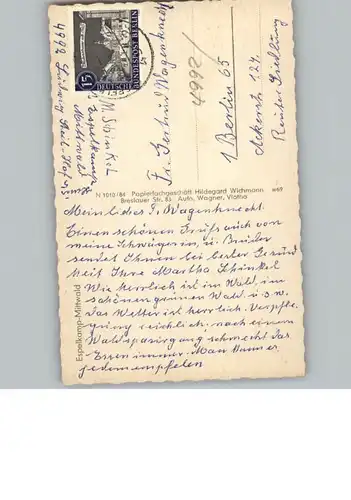 15
DEUTSCHE
BUNDESPOST BERLIN
M. Schinkel
Espelkamp
4992
Fr. Gertrud Wagenknecht
1 Berlin 65
Ackerstr. 124.
4992/
N 1010/84 Papierfachgeschäft Hildegard Wichmann
Breslauer Str. 83 Aufn. Wagner, Vlotho
Espelkamp-Mittwald
Mein liebes Fr. Wagenknecht.
Einen schönen Gruß auch von
meine Schwägerin, u. Bruder
sendet Ihnen bei bester Gesund
heit Ihre Martha Schinkel
Wie herrlich ist im Wald, im
schönen grünen Wald u.s.w.
Das Wetter ist herrlich. Verpfle-
gung reichlich, nach einem
Waldspaziergang schmeckt das
Essen immer. Man kann es
jedem empfehlen